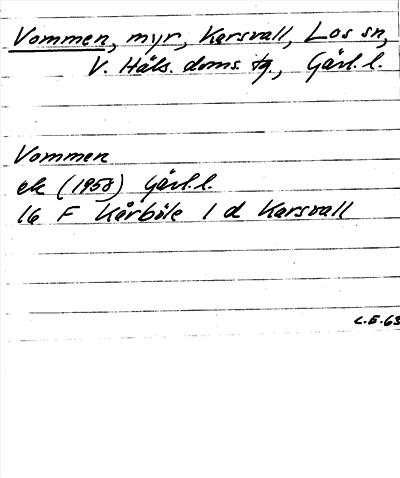 Vommen, myr, Karsvall, Los sn,
V. Häls. doms. tg., Gävl. l.
Vommen
ek (1958) Gävl. l.
16 F Kårböle 1 d Karsvall
L.E.63